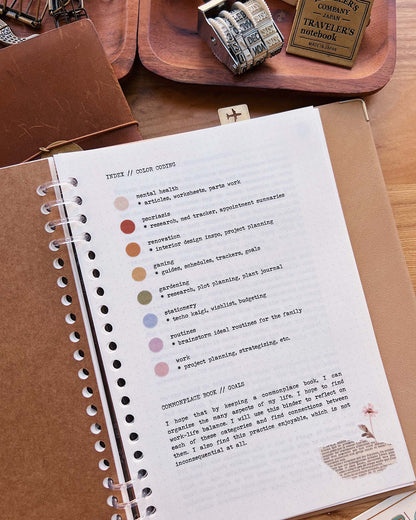 TRAVELER'S
COMPANY
JAPAN
TRAVELER'S
notebook
MADE IN JAPAN
INDEX // COLOR CODING
mental health
* articles, worksheets, parts work
psoriasis
* research, med tracker, appointment summaries
renovation
* interior design inspo, project planning
gaming
* guides, schedules, trackers, goals
gardening
* research, plot planning, plant journal
stationery
* techo kaigi, wishlist, budgeting
routines
* brainstorm ideal routines for the family
work
* project planning, strategizing, etc.
COMMONPLACE BOOK // GOALS
I hope that by keeping a commonplace book, I can
organize the many aspects of my life. I hope to find
work-life balance. I will use this binder to reflect on
each of these categories and find connections between
them. I also find this practice enjoyable, which is not
inconsequential at all.